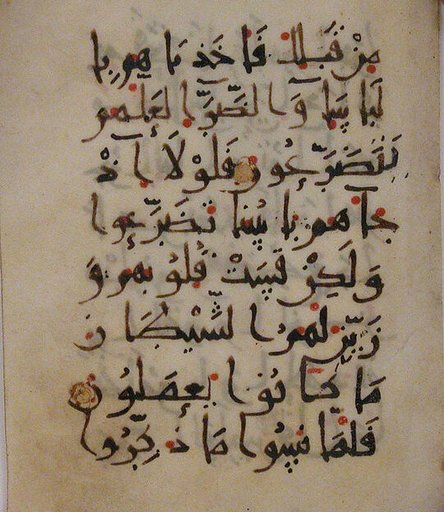 مِنْ قَبلك فَاخَذنَاهم بِا
لبَاسَا وَالضَّرَّا لعَلهم
يَتَضَرَّعُون فَلَوْلَا اذْ
جَاهم بَاسُنَا تَضَرَّعُوا
وَلَكِنْ قَسَتْ قُلُوبهم وَ
زَيَّنَ لهمُ الشَّيْطَان
مَا كَانُوا يَعمَلُون
فَلَمَّا نَسُوا مَا ذُكِّرُوا